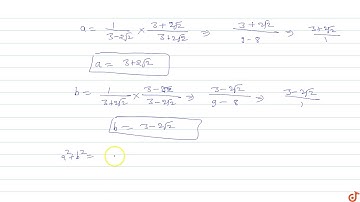 a = 1/(3-2√2) × (3+2√2)/(3+2√2) ⇒ (3+2√2)/(9-8) ⇒ (3+2√2)/1
a = 3+2√2
b = 1/(3+2√2) × (3-2√2)/(3-2√2) ⇒ (3-2√2)/(9-8) ⇒ (3-2√2)/1
b = 3-2√2
a²+b² =